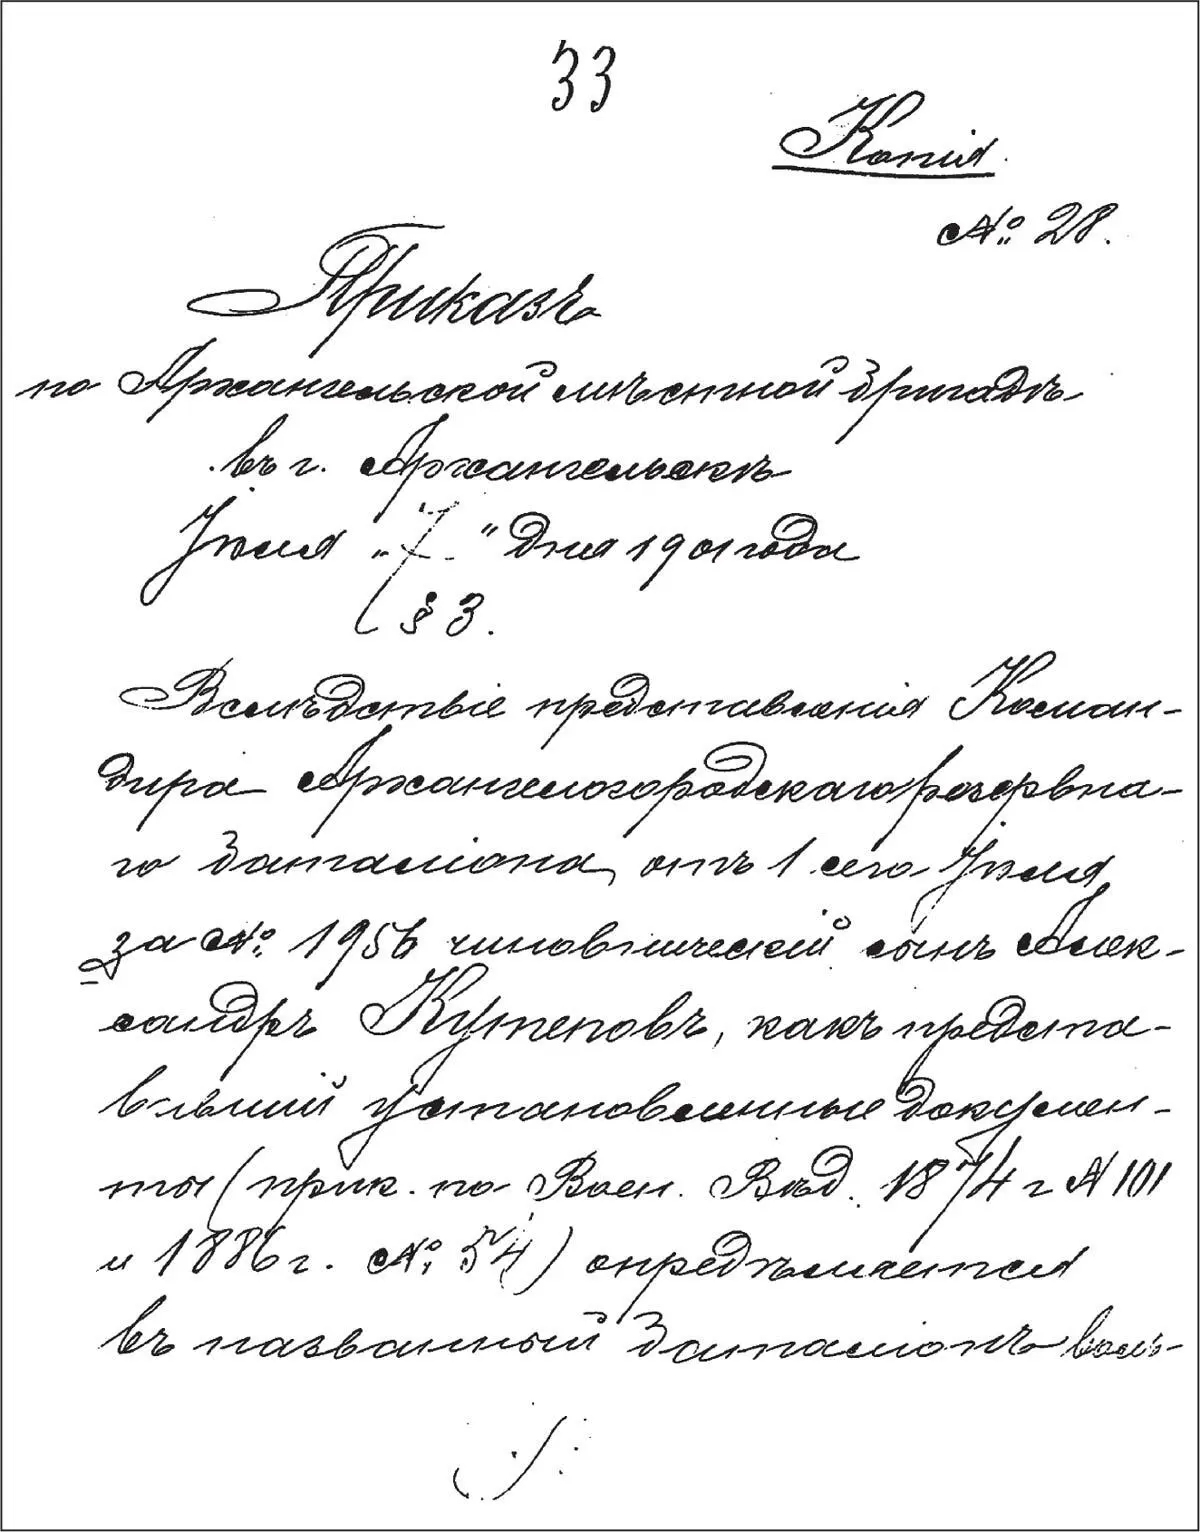 33
Копія.
№ 28.
Приказъ
по Архангельской мѣстной бригадѣ
въ г. Архангельскѣ
Іюля „7" дня 1901 года
§ 3.
Вслѣдствіе представленія Коман-
дира Архангелогородскаго резервна-
го баталіона, отъ 1 сего Іюля
за № 1956 чиновническій сынъ Алек-
сандръ Кутеповъ, какъ предста-
вившій установленные докумен-
ты (прик. по Воен. Вѣд. 1874 г № 101
и 1886 г. № 54) опредѣляется
въ названный баталіонъ воль-